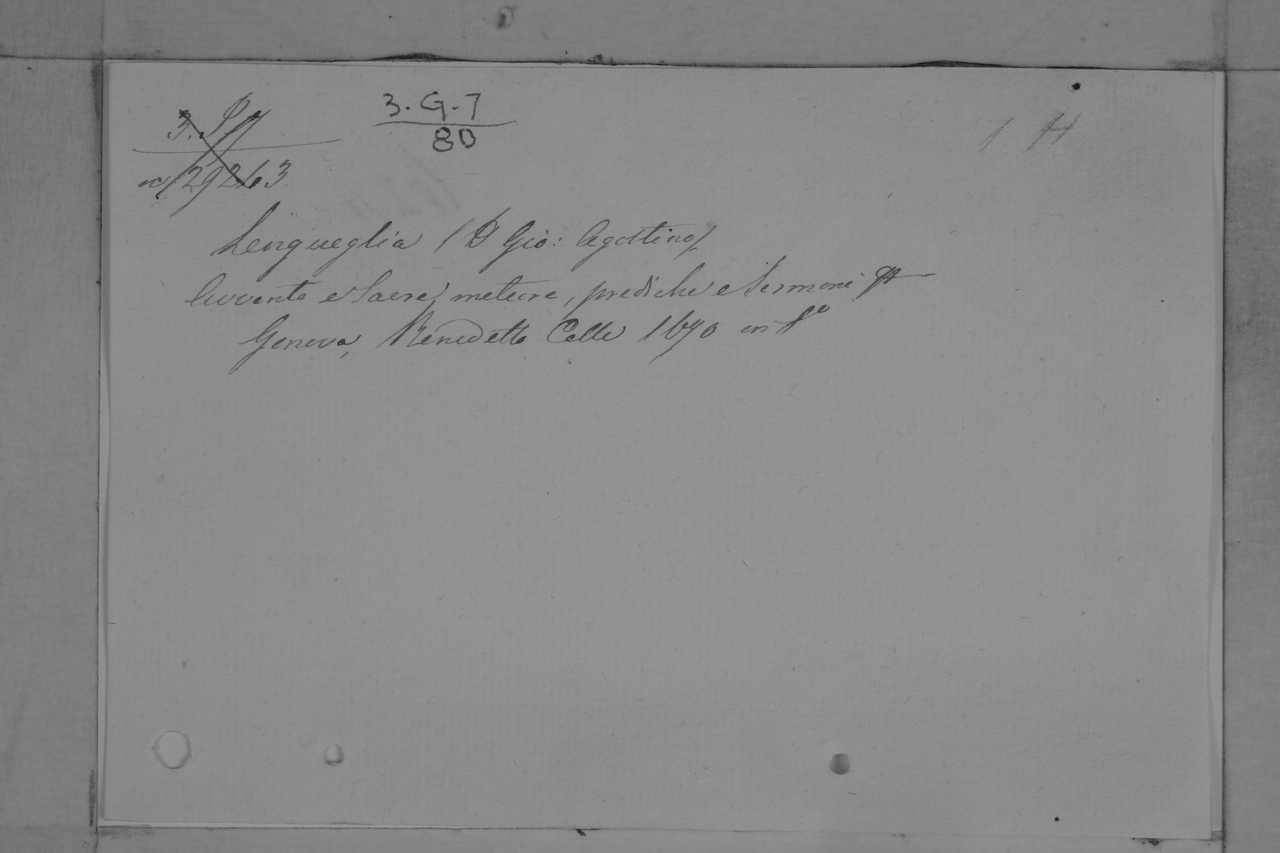 3. G. 7
80
n. 29263
Lengueglia (D Gio: Agostino)
Avvento e Sacre meteore, prediche e Sermoni
Genova, Benedetto Celle 1670 in 8°